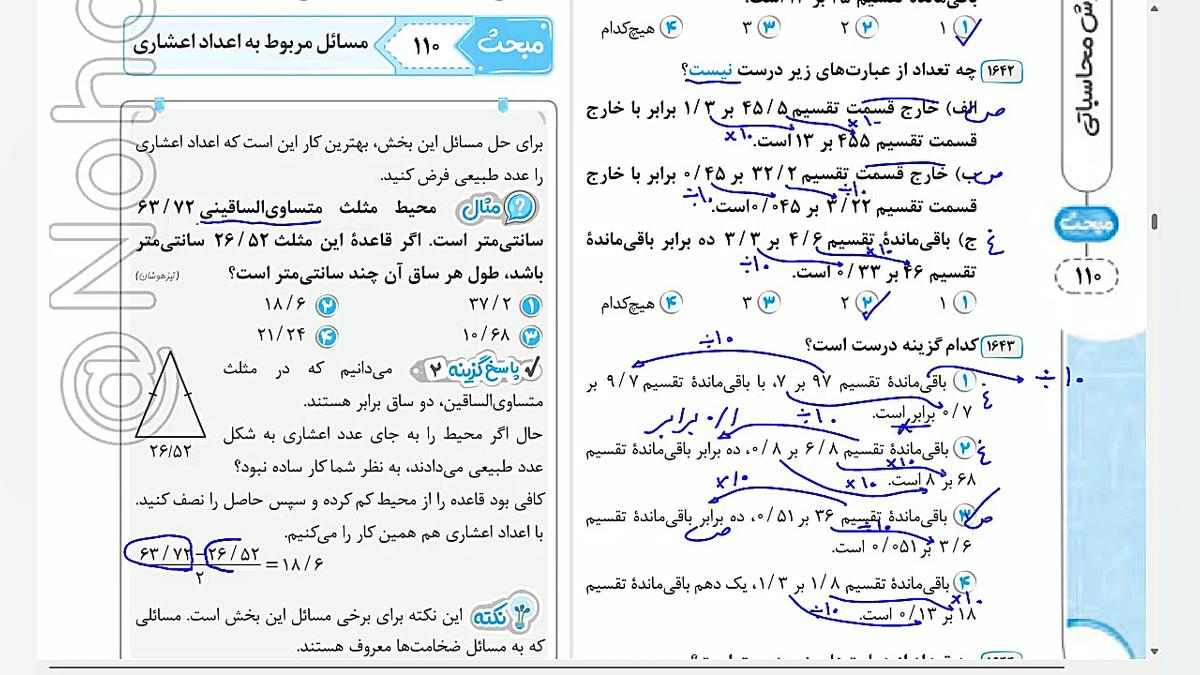 ۱ ۱ ۲ ۲ ۳ ۳ ۴ هیچ‌کدام
۱۶۴۲ چه تعداد از عبارت‌های زیر درست نیست؟
الف) خارج قسمت تقسیم ۴۵/۵ بر ۱/۳ برابر با خارج
قسمت تقسیم ۴۵۵ بر ۱۳ است.
×۱۰ ×۱۰
ص
ب) خارج قسمت تقسیم ۳۲/۲ بر ۰/۴۵ برابر با خارج
قسمت تقسیم ۳/۲۲ بر ۰/۰۴۵ است.
÷۱۰ ÷۱۰
ص
ج) باقی‌ماندهٔ تقسیم ۴/۶ بر ۳/۳ ده برابر باقی‌ماندهٔ
تقسیم ۴۶ بر ۰/۳۳ است.
×۱۰ ÷۱۰
غ
۱ ۱ ۲ ۲ ۳ ۳ ۴ هیچ‌کدام
۱۶۴۳ کدام گزینه درست است؟
÷۱۰
۱ باقی‌ماندهٔ تقسیم ۹۷ بر ۷، با باقی‌ماندهٔ تقسیم ۹/۷ بر
۰/۷ برابر است.
÷۱۰ ÷۱۰
غ
۰/۱ برابر
۲ باقی‌ماندهٔ تقسیم ۶/۸ بر ۰/۸، ده برابر باقی‌ماندهٔ تقسیم
۶۸ بر ۸ است.
×۱۰ ×۱۰ ×۱۰
غ
۳ باقی‌ماندهٔ تقسیم ۳۶ بر ۰/۵۱، ده برابر باقی‌ماندهٔ تقسیم
۳/۶ بر ۰/۰۵۱ است.
÷۱۰
ص
ص
۴ باقی‌ماندهٔ تقسیم ۱/۸ بر ۱/۳، یک دهم باقی‌ماندهٔ تقسیم
۱۸ بر ۰/۱۳ است.
×۱۰ ÷۱۰
مبحث ۱۱۰ مسائل مربوط به اعداد اعشاری
برای حل مسائل این بخش، بهترین کار این است که اعداد اعشاری
را عدد طبیعی فرض کنید.
مثال محیط مثلث متساوی‌الساقینی ۶۳/۷۲
سانتی‌متر است. اگر قاعدهٔ این مثلث ۲۶/۵۲ سانتی‌متر
باشد، طول هر ساق آن چند سانتی‌متر است؟ (تیزهوشان)
۱ ۳۷/۲ ۲ ۱۸/۶
۳ ۱۰/۶۸ ۴ ۲۱/۲۴
پاسخ گزینه ۲ می‌دانیم که در مثلث
متساوی‌الساقین، دو ساق برابر هستند.
حال اگر محیط را به جای عدد اعشاری به شکل
عدد طبیعی می‌دادند، به نظر شما کار ساده نبود؟
۲۶/۵۲
کافی بود قاعده را از محیط کم کرده و سپس حاصل را نصف کنید.
با اعداد اعشاری هم همین کار را می‌کنیم.
۶۳/۷۲ − ۲۶/۵۲
۲
= ۱۸/۶
نکته این نکته برای برخی مسائل این بخش است. مسائلی
که به مسائل ضخامت‌ها معروف هستند.
محاسباتی
مبحث
۱۱۰
@Noho